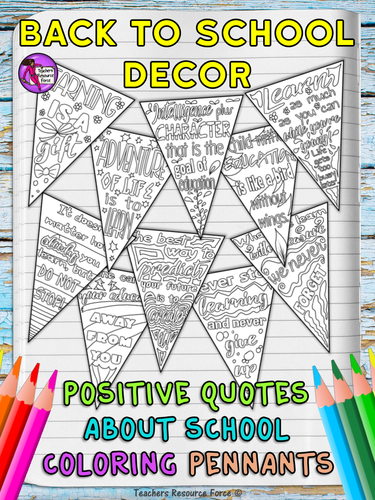 BACK TO SCHOOL
DECOR
Teachers
Resource
Force
IS A
gift
ADVENTURE
OF LIFE
IS TO
LEARN
Intelligence plus
CHARACTER
that is the
goal of
education
Learn
as much
as you can
while you're
young
Life
gets
child without
EDUCATION
is like a
bird
without
wings
It does
matter how
slowly you
learn
DO NOT
STOP
AWAY
FROM
YOU
The best
way to
Predict
your future
is to
learning
and never
give
up
learn
we never
FORGET
POSITIVE QUOTES
ABOUT SCHOOL
COLORING PENNANTS
Teachers Resource Force ©